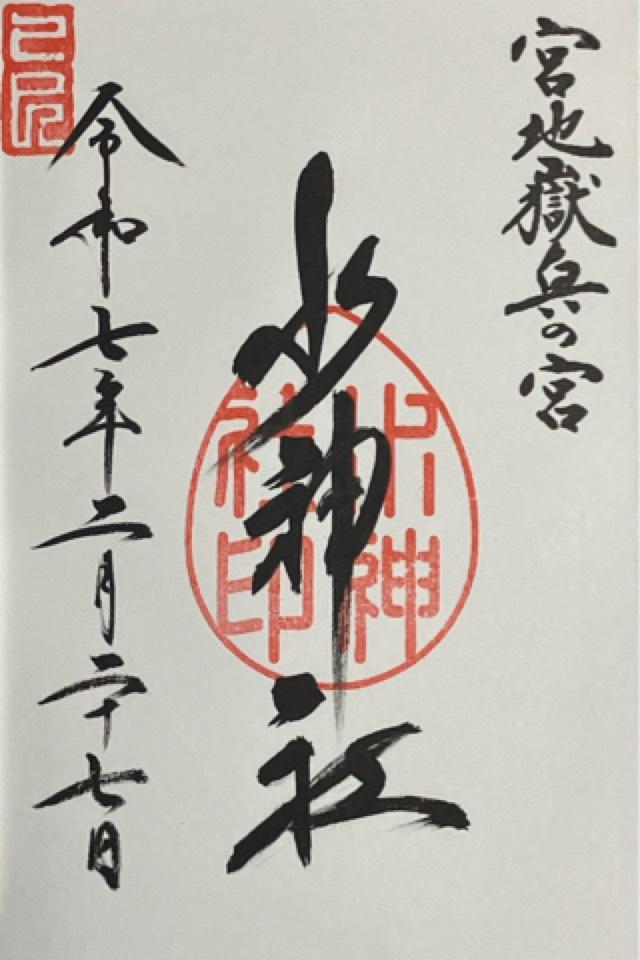 宮地嶽奥の宮
水神社
水神社印
令和七年二月二十七日